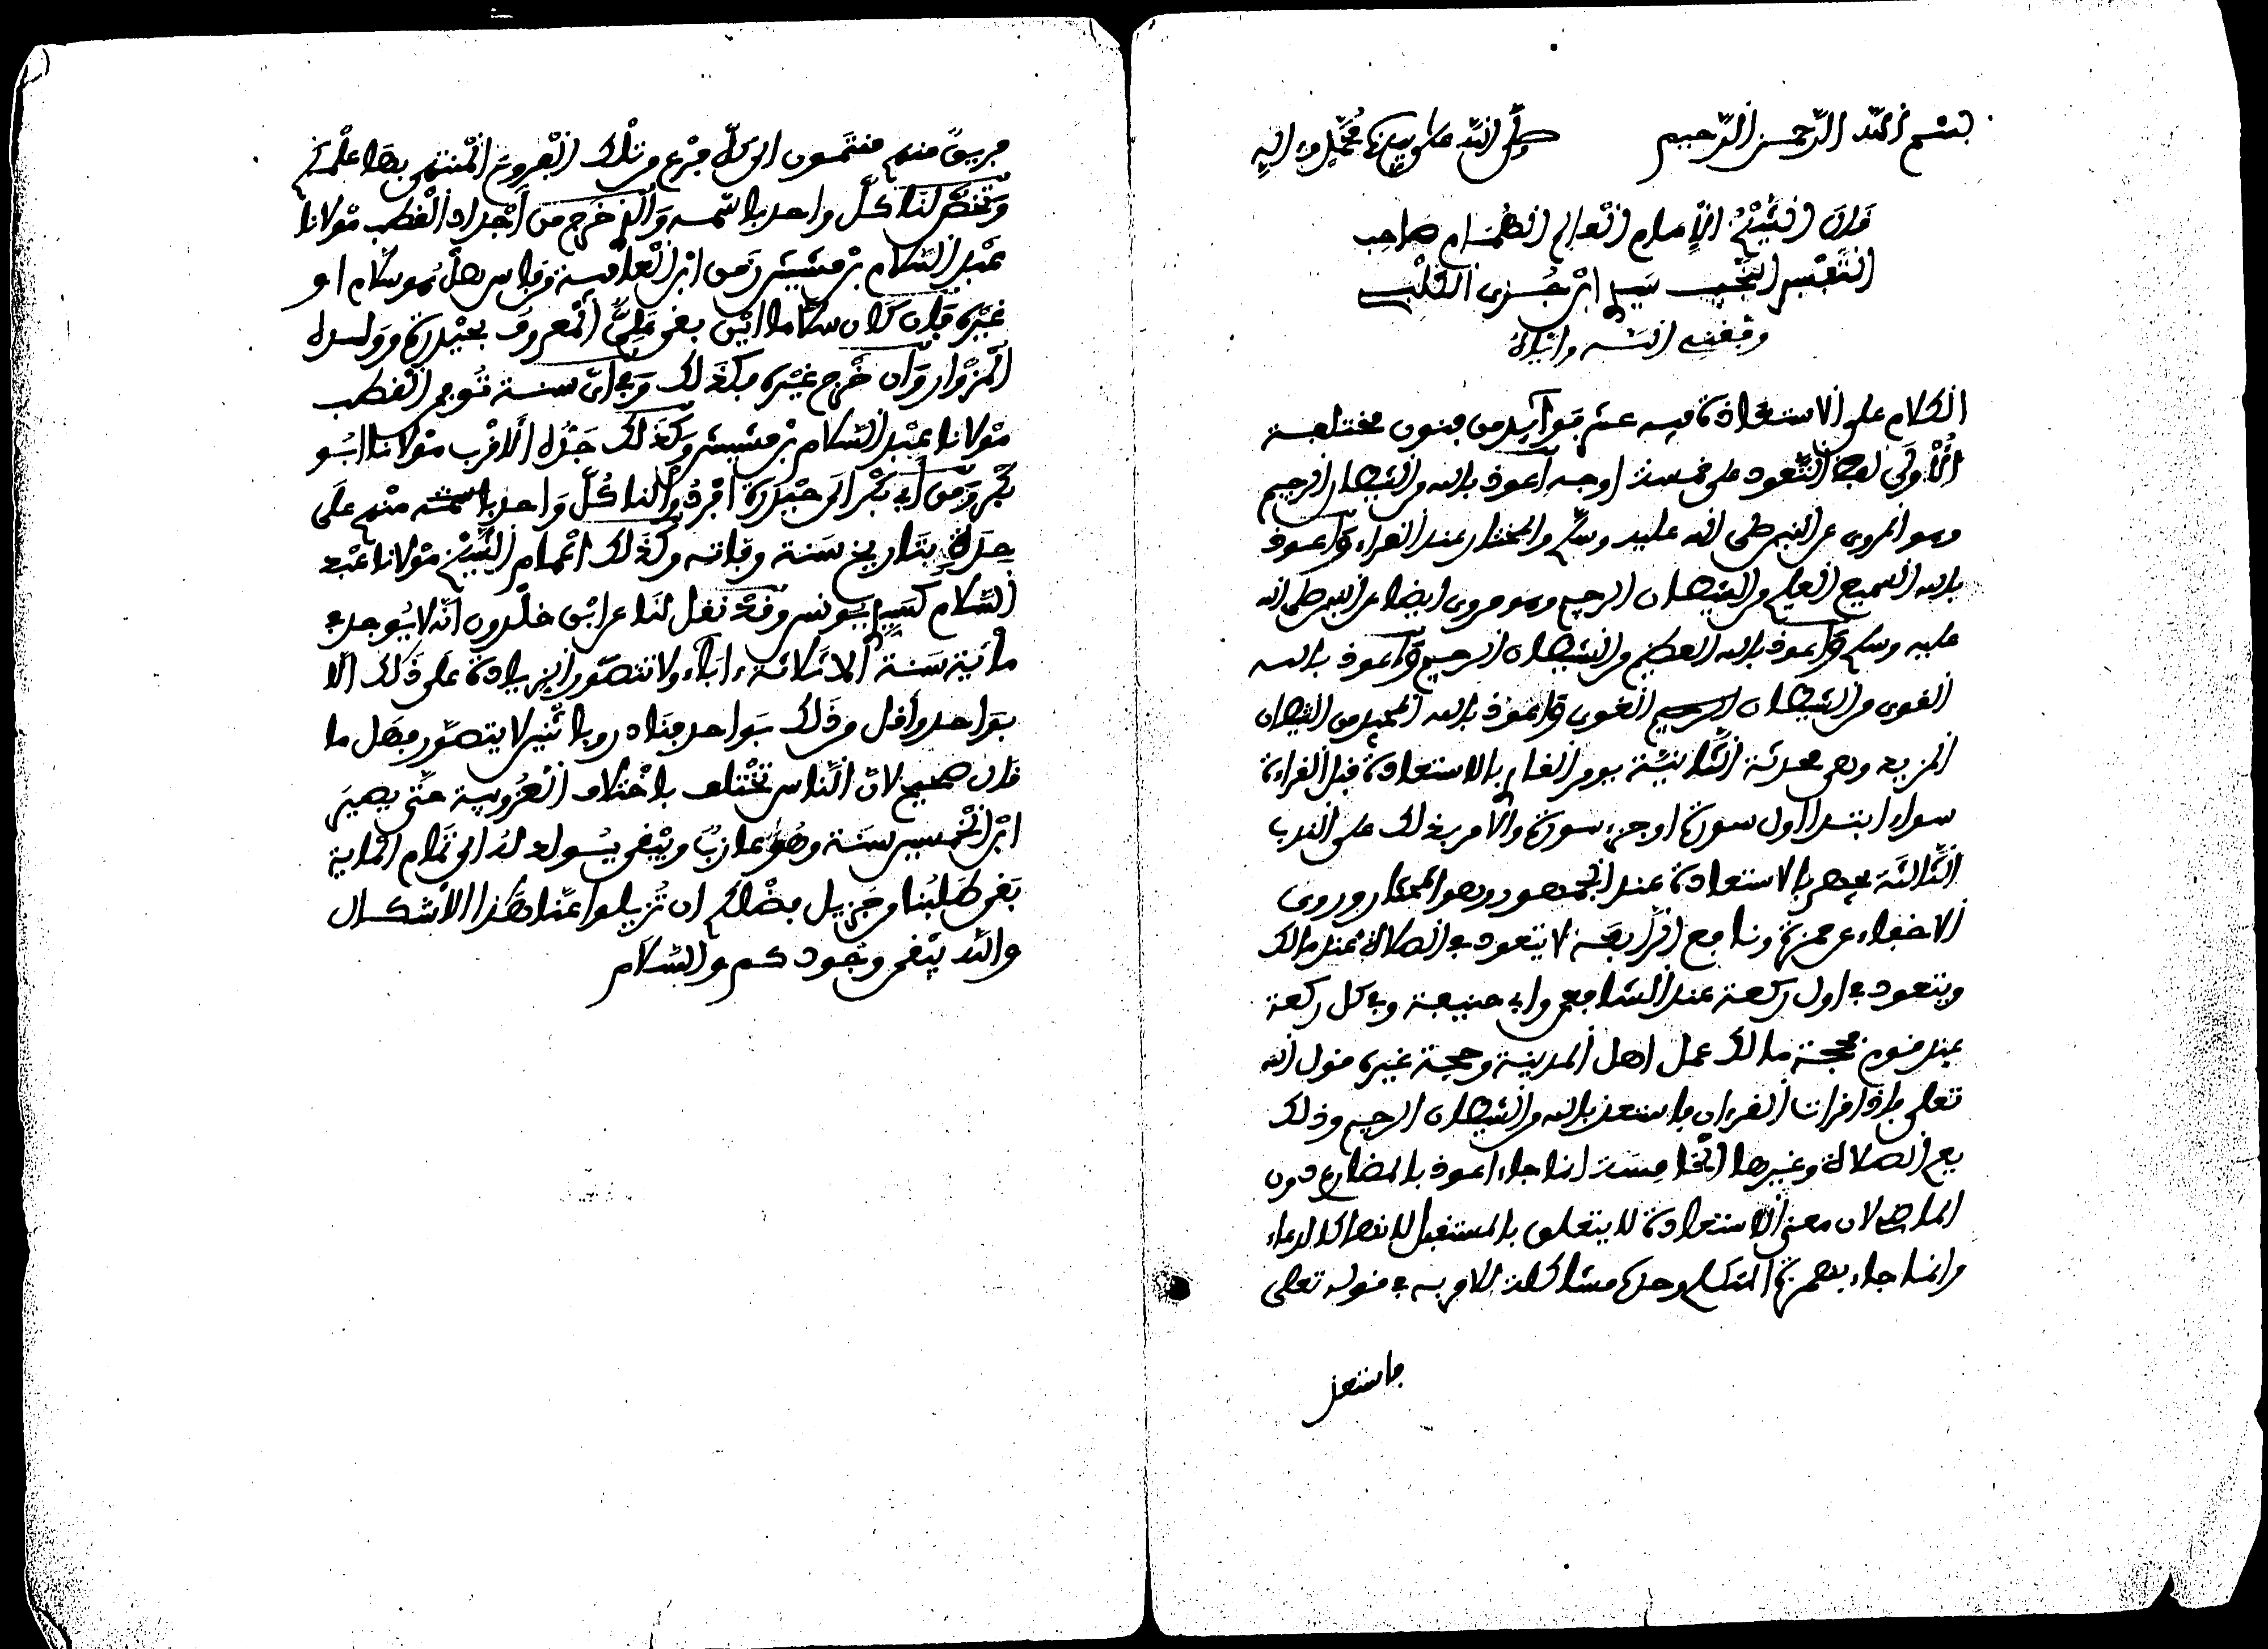 بسم الله الرحمن الرحيم صلى الله على سيدنا محمد وءاله
قال الشيخ الإمام العالم الهمام صاحب
التفسير العجيب سيدي ابن جزي الكلبي
رحمه الله
الكلام على الاستعاذة فيه عشر فوائد من فنون مختلفة
الأولى لفظ التعوذ على خمسة اوجه اعوذ بالله من الشيطان الرجيم
وهو المروي عن النبي صلى الله عليه وسلم والمختار عند القراء واعوذ
بالله السميع العليم من الشيطان الرجيم وهو مروي ايضا عن النبي صلى الله
عليه وسلم واعوذ بالله العظيم من الشيطان الرجيم واعوذ بالله
القوي من الشيطان الغوي واعوذ بالله المجيد من الشيطان
المريد وهي محدثة الثانية يومر القارئ بالاستعاذة قبل القراءة
سواء ابتدا اول سورة او جزء سورة والامر بذلك على الندب
الثالثة يجهر بالاستعاذة عند الجمهور وهو المختار وروي
الاخفاء عن حمزة ونافع الرابعة لا يتعوذ في الصلاة عند مالك
ويتعوذ في اول ركعة عند الشافعي وابي حنيفة وفي كل ركعة
عند قوم فحجة مالك عمل اهل المدينة وحجة غيره قول الله
تعلى فإذا قرات القرءان فاستعذ بالله من الشيطان الرجيم وذلك
يعم الصلاة وغيرها الخامسة انما جاء اعوذ بالمضارع دون
الماضي لان معنى الاستعاذة لا يتعلق بالمستقبل لانها كالدعاء
وانما جاء بهمزة المتكلم وحده مشاكلة للامر به في قوله تعلى
فاستعذ
فريق منهم منتمون الى كل فرع من تلك الفروع المنتمى بها علمكم
وتنص لنا كل واحد باسمه والذي خرج من أجداد القطب مولانا
عبد السلام بن مشيش زمن ابن العافية من فاس هل هو سلام او
غيره فإن كان سلاما اين بقي علي المعروف بحيدرة وولده
المزوار وان خرج غيره فكذلك وفي اي سنة توفي القطب
مولانا عبد السلام بن مشيش وكذلك جده الاقرب مولانا ابو
بكر ومن ابي بكر الى حيدرة افردوا لنا كل واحد باسمه منهم على
حدة بتاريخ سنة وفاته وكذلك اعمام الشيخ مولانا عبد
السلام كسيدي يونس وقد نقل لنا عن ابن خلدون انه لا يوجد في
مائية سنة الا ثلاثة ءاباء ولا تتصور الزيادة على ذلك الا
بواحد واقل من ذلك بواحد فناد روباثنين لا يتصور فهل ما
قال صحيح لان الناس تختلف باختلاف العزوبية حتى يصير
ابن الخمسين سنة وهو عازب ويبقى يولد له الى تمام الماية
بقي طلبنا من جزيل فضلكم ان تزيلوا عنا هذا الاشكال
والله يبقي وجودكم والسلام